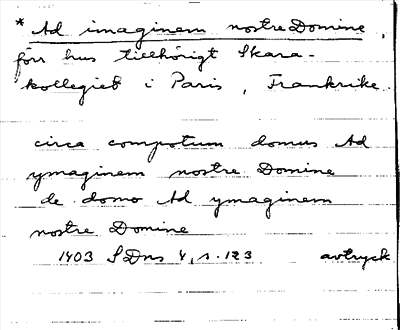 * Ad imaginem nostre Domine,
förr hus tillhörigt Skara-
kollegiet i Paris, Frankrike.
circa compotum domus Ad
ymaginem nostre Domine
de domo Ad ymaginem
nostre Domine
1403 SDns 4, s. 123 avtryck